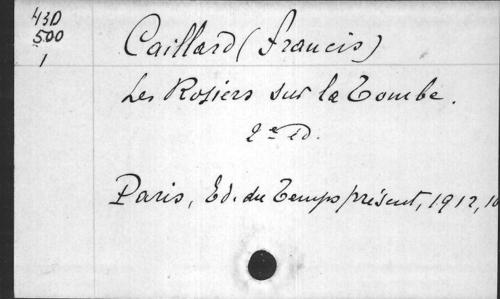 43D
500
1
Caillard (Francis)
Les Rosiers sur la Tombe.
2e Ed.
Paris, Ed. du Temps présent, 1912, 16